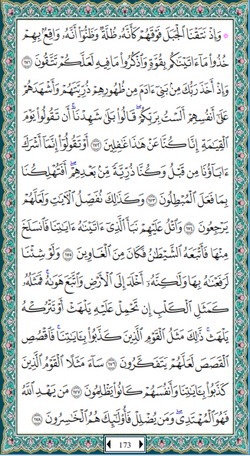 ۞ وَإِذْ نَتَقْنَا ٱلْجَبَلَ فَوْقَهُمْ كَأَنَّهُۥ ظُلَّةٌ وَظَنُّوٓا۟ أَنَّهُۥ وَاقِعٌۢ بِهِمْ
خُذُوا۟ مَآ ءَاتَيْنَٰكُم بِقُوَّةٍ وَٱذْكُرُوا۟ مَا فِيهِ لَعَلَّكُمْ تَتَّقُونَ ١٧١
وَإِذْ أَخَذَ رَبُّكَ مِنۢ بَنِىٓ ءَادَمَ مِن ظُهُورِهِمْ ذُرِّيَّتَهُمْ وَأَشْهَدَهُمْ
عَلَىٰٓ أَنفُسِهِمْ أَلَسْتُ بِرَبِّكُمْ ۖ قَالُوا۟ بَلَىٰ ۛ شَهِدْنَآ ۛ أَن تَقُولُوا۟ يَوْمَ
ٱلْقِيَٰمَةِ إِنَّا كُنَّا عَنْ هَٰذَا غَٰفِلِينَ ١٧٢ أَوْ تَقُولُوٓا۟ إِنَّمَآ أَشْرَكَ
ءَابَآؤُنَا مِن قَبْلُ وَكُنَّا ذُرِّيَّةً مِّنۢ بَعْدِهِمْ ۖ أَفَتُهْلِكُنَا
بِمَا فَعَلَ ٱلْمُبْطِلُونَ ١٧٣ وَكَذَٰلِكَ نُفَصِّلُ ٱلْءَايَٰتِ وَلَعَلَّهُمْ
يَرْجِعُونَ ١٧٤ وَٱتْلُ عَلَيْهِمْ نَبَأَ ٱلَّذِىٓ ءَاتَيْنَٰهُ ءَايَٰتِنَا فَٱنسَلَخَ
مِنْهَا فَأَتْبَعَهُ ٱلشَّيْطَٰنُ فَكَانَ مِنَ ٱلْغَاوِينَ ١٧٥ وَلَوْ شِئْنَا
لَرَفَعْنَٰهُ بِهَا وَلَٰكِنَّهُۥٓ أَخْلَدَ إِلَى ٱلْأَرْضِ وَٱتَّبَعَ هَوَىٰهُ ۚ فَمَثَلُهُۥ
كَمَثَلِ ٱلْكَلْبِ إِن تَحْمِلْ عَلَيْهِ يَلْهَثْ أَوْ تَتْرُكْهُ
يَلْهَث ۚ ذَّٰلِكَ مَثَلُ ٱلْقَوْمِ ٱلَّذِينَ كَذَّبُوا۟ بِـَٔايَٰتِنَا ۚ فَٱقْصُصِ
ٱلْقَصَصَ لَعَلَّهُمْ يَتَفَكَّرُونَ ١٧٦ سَآءَ مَثَلًا ٱلْقَوْمُ ٱلَّذِينَ
كَذَّبُوا۟ بِـَٔايَٰتِنَا وَأَنفُسَهُمْ كَانُوا۟ يَظْلِمُونَ ١٧٧ مَن يَهْدِ ٱللَّهُ
فَهُوَ ٱلْمُهْتَدِى ۖ وَمَن يُضْلِلْ فَأُو۟لَٰٓئِكَ هُمُ ٱلْخَٰسِرُونَ ١٧٨
173